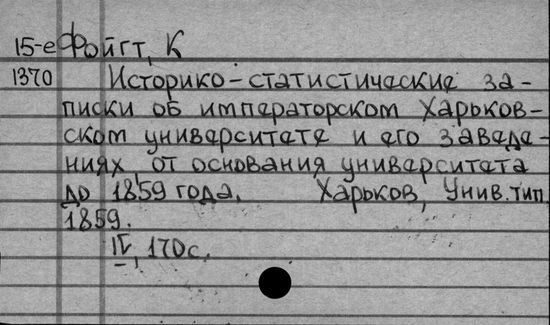 15-е Фойгт, К
1370 Историко-статистические за-
писки об императорском Харьков-
ском университете и его заведе-
ниях, от основания университета
до 1859 года. Харьков, Унив. тип.
1859.
IV, 170 с.